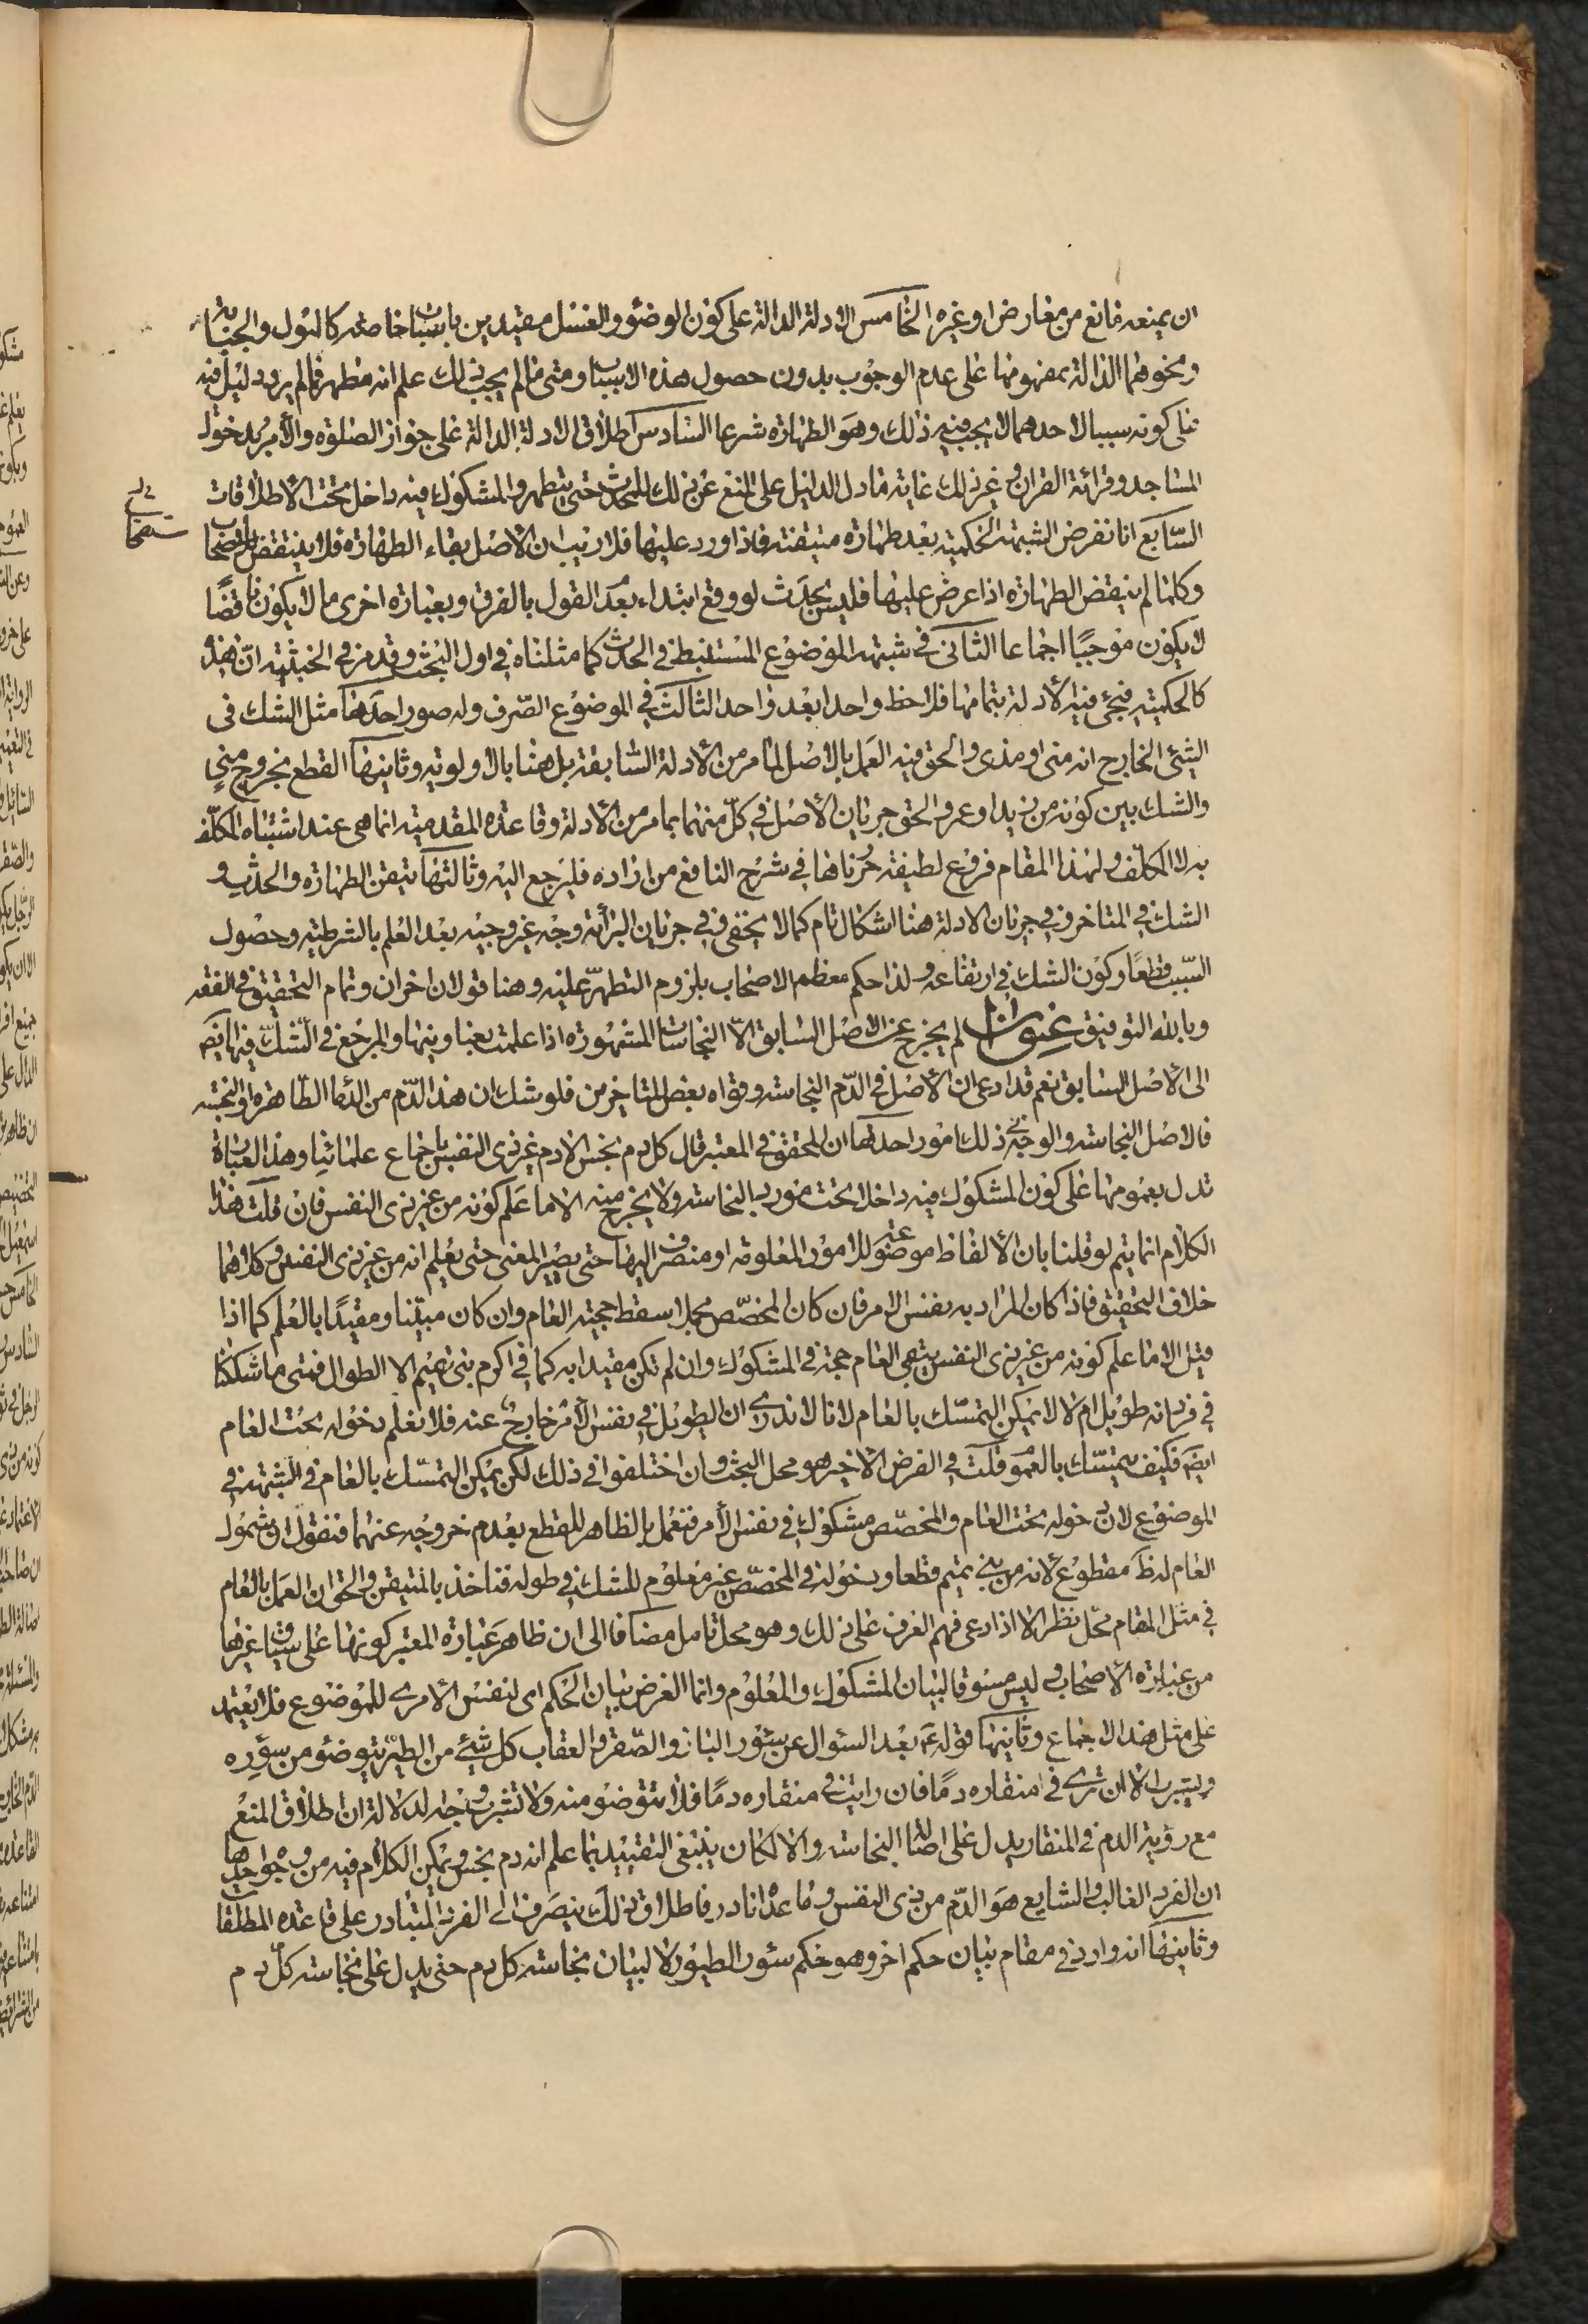 ان يمنعه مانع من معارض او غيره الخامس الادلة الدالة على كون الوضوء والغسل مقيدين باسباب خاصة كالبول والجنابة
ونحوهما الدالة بمفهومها على عدم الوجوب بدون حصول هذه الاسباب ومتى ما لم يجب ذلك علم انه متطهر فما لم يرد دليل فيه
على كونه سببا لاحدهما لا يجب فيه ذلك وهو الطهارة شرعا السادس اطلاق الادلة الدالة على جواز الصلوة والامر بدخول
المساجد وقرائة القران وغير ذلك غاية ما دل الدليل على المنع عن ذلك للمحدث حتى يتطهر والمشكوك فيه داخل تحت الاطلاقات
السابع انا نفرض الشبهة الحكمية بعد طهارة متيقنة فاذا ورد عليها فلا ريب ان الاصل بقاء الطهارة فلا ينتقض بالاستصحاب
وكلما لم ينتقض الطهارة اذا عرض عليها فليس بحدث لو وقع ابتداء بعدم القول بالفرق وبعبارة اخرى ما لا يكون ناقضًا
لا يكون موجبًا اجماعا الثاني في شبهة الموضوع المستنبط في الحدث كما مثلناه في اول البحث وقد مر في الخبثية ان هذه
كالحكمية فيجئ فيه الادلة بتمامها فلاحظ واحدا بعد واحد الثالث في الموضوع الصرف وله صور احدها مثل الشك في
الشيء الخارج انه مني او مذي والحق فيه العمل بالاصل لما مر من الادلة السابقة بل هنا بالاولوية وثانيها القطع بخروج مني
والشك بين كونه من زيد او عمرو والحق جريان الاصل في كل منهما بما مر من الادلة وقاعدة المقدمية انما هي عند اشتباه المكلف
به لا المكلف ولهذا المقام فروع لطيفة حررناها في شرح النافع من اراده فليرجع اليه وثالثها تيقن الطهارة والحدث و
الشك في المتاخر وفي جريان الادلة هنا اشكال تام كما لا يخفى ففي جريان البرائة وجه غير وجيه بعد العلم بالشرطية وحصول
السبب قطعًا وكون الشك في ارتفاعه ولذا حكم معظم الاصحاب بلزوم التطهر عليه وهنا قولان اخران وتمام التحقيق في الفقه
وبالله التوفيق عنوان لم يخرج عن الاصل السابق الا النجاسات المشهورة اذا علمت بعناوينها والمرجع في الشك فيها ايضا
الى الاصل السابق نعم قد ادعى ان الاصل في الدم النجاسة وقواه بعض المتاخرين فلو شك ان هذا الدم من الدماء الطاهرة او النجسة
فالاصل النجاسة والوجه في ذلك امور احدها ان المحقق في المعتبر قال كل دم نجس الا دم غير ذي النفس باجماع علمائنا وهذه العبارة
تدل بعمومها على كون المشكوك فيه داخلا تحت مورد النجاسة ولا يخرج منه الا ما علم كونه من غير ذي النفس فان قلت هذا
الكلام انما يتم لو قلنا بان الالفاظ موضوعة للامور المعلومة او منصرف اليها حتى يصير المعنى حتى يعلم انه من غير ذي النفس وكلاهما
خلاف التحقيق فاذا كان المراد به نفس الامر فان كان المخصص مجملا سقط حجية العام وان كان مبينا ومقيدًا بالعلم كما اذا
قيل الا ما علم كونه من غير ذي النفس بقي العام حجة في المشكوك وان لم تكن مقيدا به كما في اكرم بني تميم الا الطوال فمتى ما شككنا
في فرد انه طويل ام لا لا يمكن التمسك بالعام لانا لا ندري ان الطويل في نفس الامر خارج عنه فلا نعلم دخوله تحت العام
ايضا فكيف يتمسك بالعموم قلت في الفرض الاخير هو محل البحث وان اختلفوا في ذلك لكن يمكن التمسك بالعام في الشبهة في
الموضوع لان دخوله تحت العام والمخصص مشكوك في نفس الامر فنعمل بالظاهر للقطع بعدم خروجه عنهما فنقول ان شمول
العام له ظ مقطوع لانه من بني تميم قطعا ودخوله في المخصص غير معلوم للشك في طوله فناخذ بالمتيقن والحق ان العمل بالعام
في مثل المقام محل نظر الا اذا ادعي فهم العرف على ذلك وهو محل تامل مضافا الى ان ظاهر عبارة المعتبر كونها على سياق غيرها
من عبارة الاصحاب ليس مسوقا لبيان المشكوك والمعلوم وانما الغرض بيان الحكم اى لنفس الامري للموضوع فلا يعتمد
على مثل هذا الاجماع وثانيها قوله ع بعد السئوال عن سئور الباز والصقر والعقاب كل شيء من الطير يتوضؤ من سؤره
ويشرب الا ان ترى في منقاره دمًا فان رايت في منقاره دمًا فلا تتوضؤ منه ولا تشرب وجه الدلالة ان اطلاق المنع
مع رؤية الدم في المنقار يدل على اصالة النجاسة والا لكان ينبغي التقييد بما علم انه دم نجس ويمكن الكلام فيه من وجوه احدها
ان الفرد الغالب والشايع هو الدم من ذي النفس وما عداه نادر فاطلاق ذلك ينصرف الى الفرد المتبادر على قاعدة المطلقات
وثانيها انه وارد في مقام بيان حكم اخر وهو حكم سئور الطيور لا لبيان نجاسة كل دم حتى يدل على نجاسة كل دم